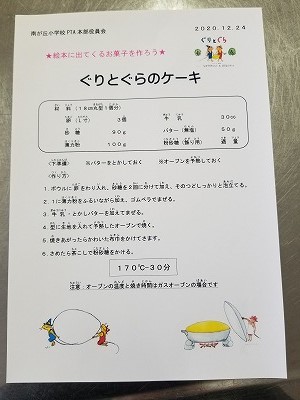 南が丘小学校 PTA本部役員会
2020.12.24
★絵本に出てくるお菓子を作ろう★
ぐりとぐら
ぐりとぐらのケーキ
材　料　(18cm丸型1個分)
卵(Lで)　3個　牛　乳　30cc
砂　糖　90g　バター(無塩)　50g
薄力粉　100g　粉砂糖(飾り用)　適　量
(下準備)　※バターをとかしておく　※オーブンを予熱しておく
(作り方)
1．ボウルに卵をわり入れ、砂糖を2回に分けて加え、そのつどしっかりと泡立てる。
2．1に薄力粉をふるいながら加え、ゴムベラでまぜる。
3．牛乳・とかしバターを加えてまぜる。
4．型に生地を入れて予熱したオーブンで焼く。
5．焼きあがったらかわいた布巾をかけてさます。
6．さめたら茶こしで粉砂糖をかける。
170℃-30分
注意：オーブンの温度と焼き時間はガスオーブンの場合です